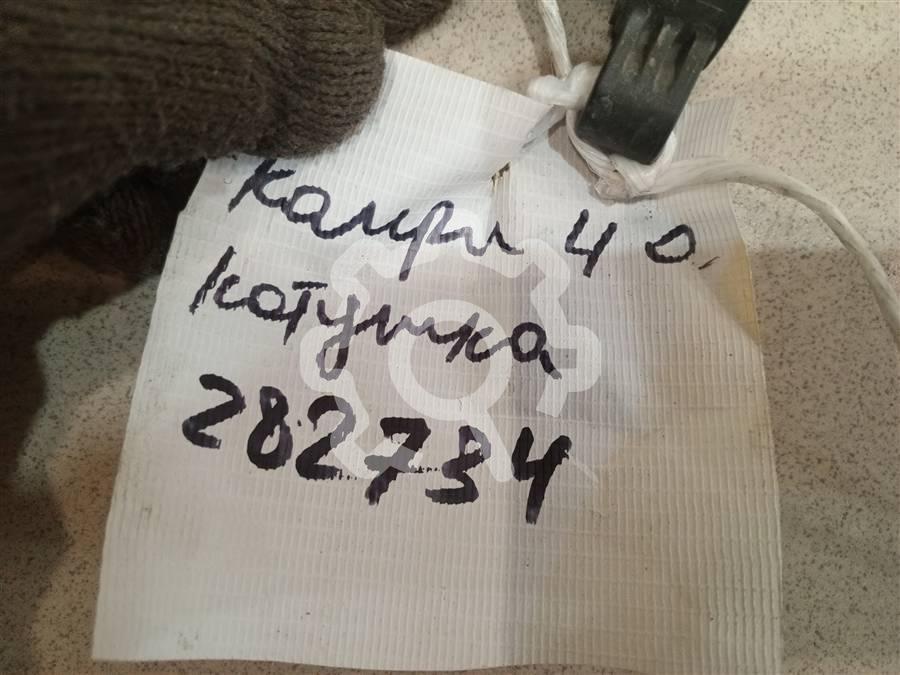 Камри 40
катушка
282734